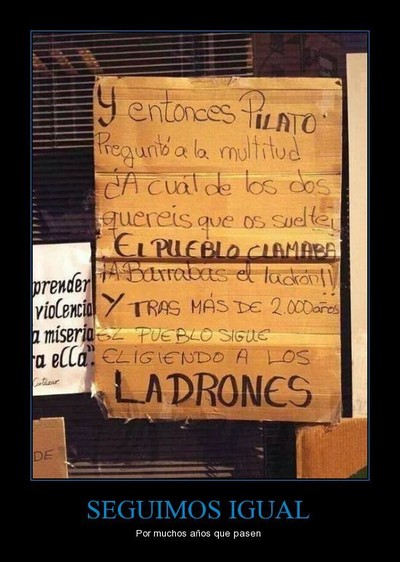 Y entonces PILATO
Preguntó a la multitud
¿A cuál de los dos
quereis que os suelte¡
EL PUEBLO CLAMABA
¡A Barrabas el ladrón!!
Y TRAS MÁS DE 2.000 años
EL PUEBLO SIGUE
ELIGIENDO A LOS
LADRONES
prender
violencia
a miseria
ra ella".
DE
SEGUIMOS IGUAL
Por muchos años que pasen